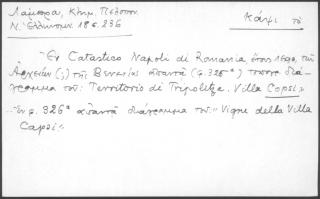 Λάμπρα, Κτημ. Πελοπον.
Ν. Ἑλληνομν. 18 σ. 236
Κάψι τό
Ἐν Catastico Napoli di Romania ἔτους 1690, τῶν
Ἀρχείων (;) τῆς Βενετίας ἀπαντᾷ (φ. 326ᵃ) τοπογρ. διά-
γραμμα τοῦ: Territorio di Tripolitza. Villa Capsi,
Ἐν φ. 326ᵃ ἀπαντᾷ διάγραμμα τοῦ: "Vigne della Villa
Capsi"